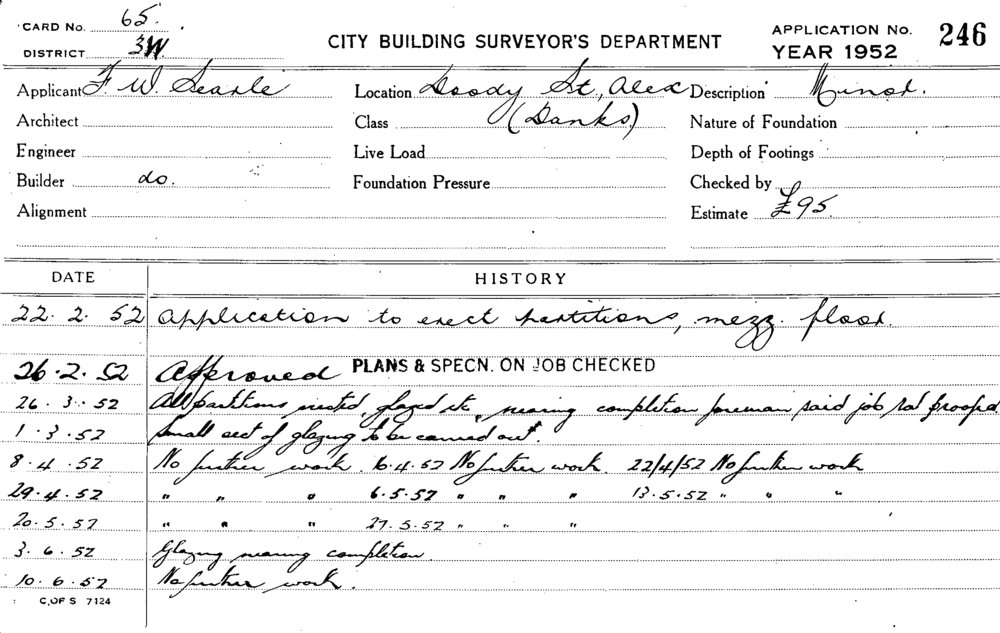 CARD No. 65. CITY BUILDING SURVEYOR'S DEPARTMENT APPLICATION No. 246
DISTRICT 3W YEAR 1952
Applicant F. W. Searle Location Doody St., Alex Description Minor.
Architect Class (Danks) Nature of Foundation
Engineer Live Load Depth of Footings
Builder do. Foundation Pressure Checked by
Alignment Estimate £95.
DATE HISTORY
22. 2. 52 Application to erect partitions, mezz. floor.
26.2.52 Approved PLANS & SPECN. ON JOB CHECKED
26.3.52 All partitions erected, glazed etc, nearing completion foreman said job rat proofed
1.3.52 Small sect of glazing to be carried out.
8.4.52 No further work. 16.4.52 No further work. 22/4/52 No further work
29.4.52 " " " 6.5.52 " " " 13.5.52 " " "
20.5.52 " " " 27.5.52 " " "
3.6.52 Glazing nearing completion
10.6.52 No further work.
C. OF S 7124